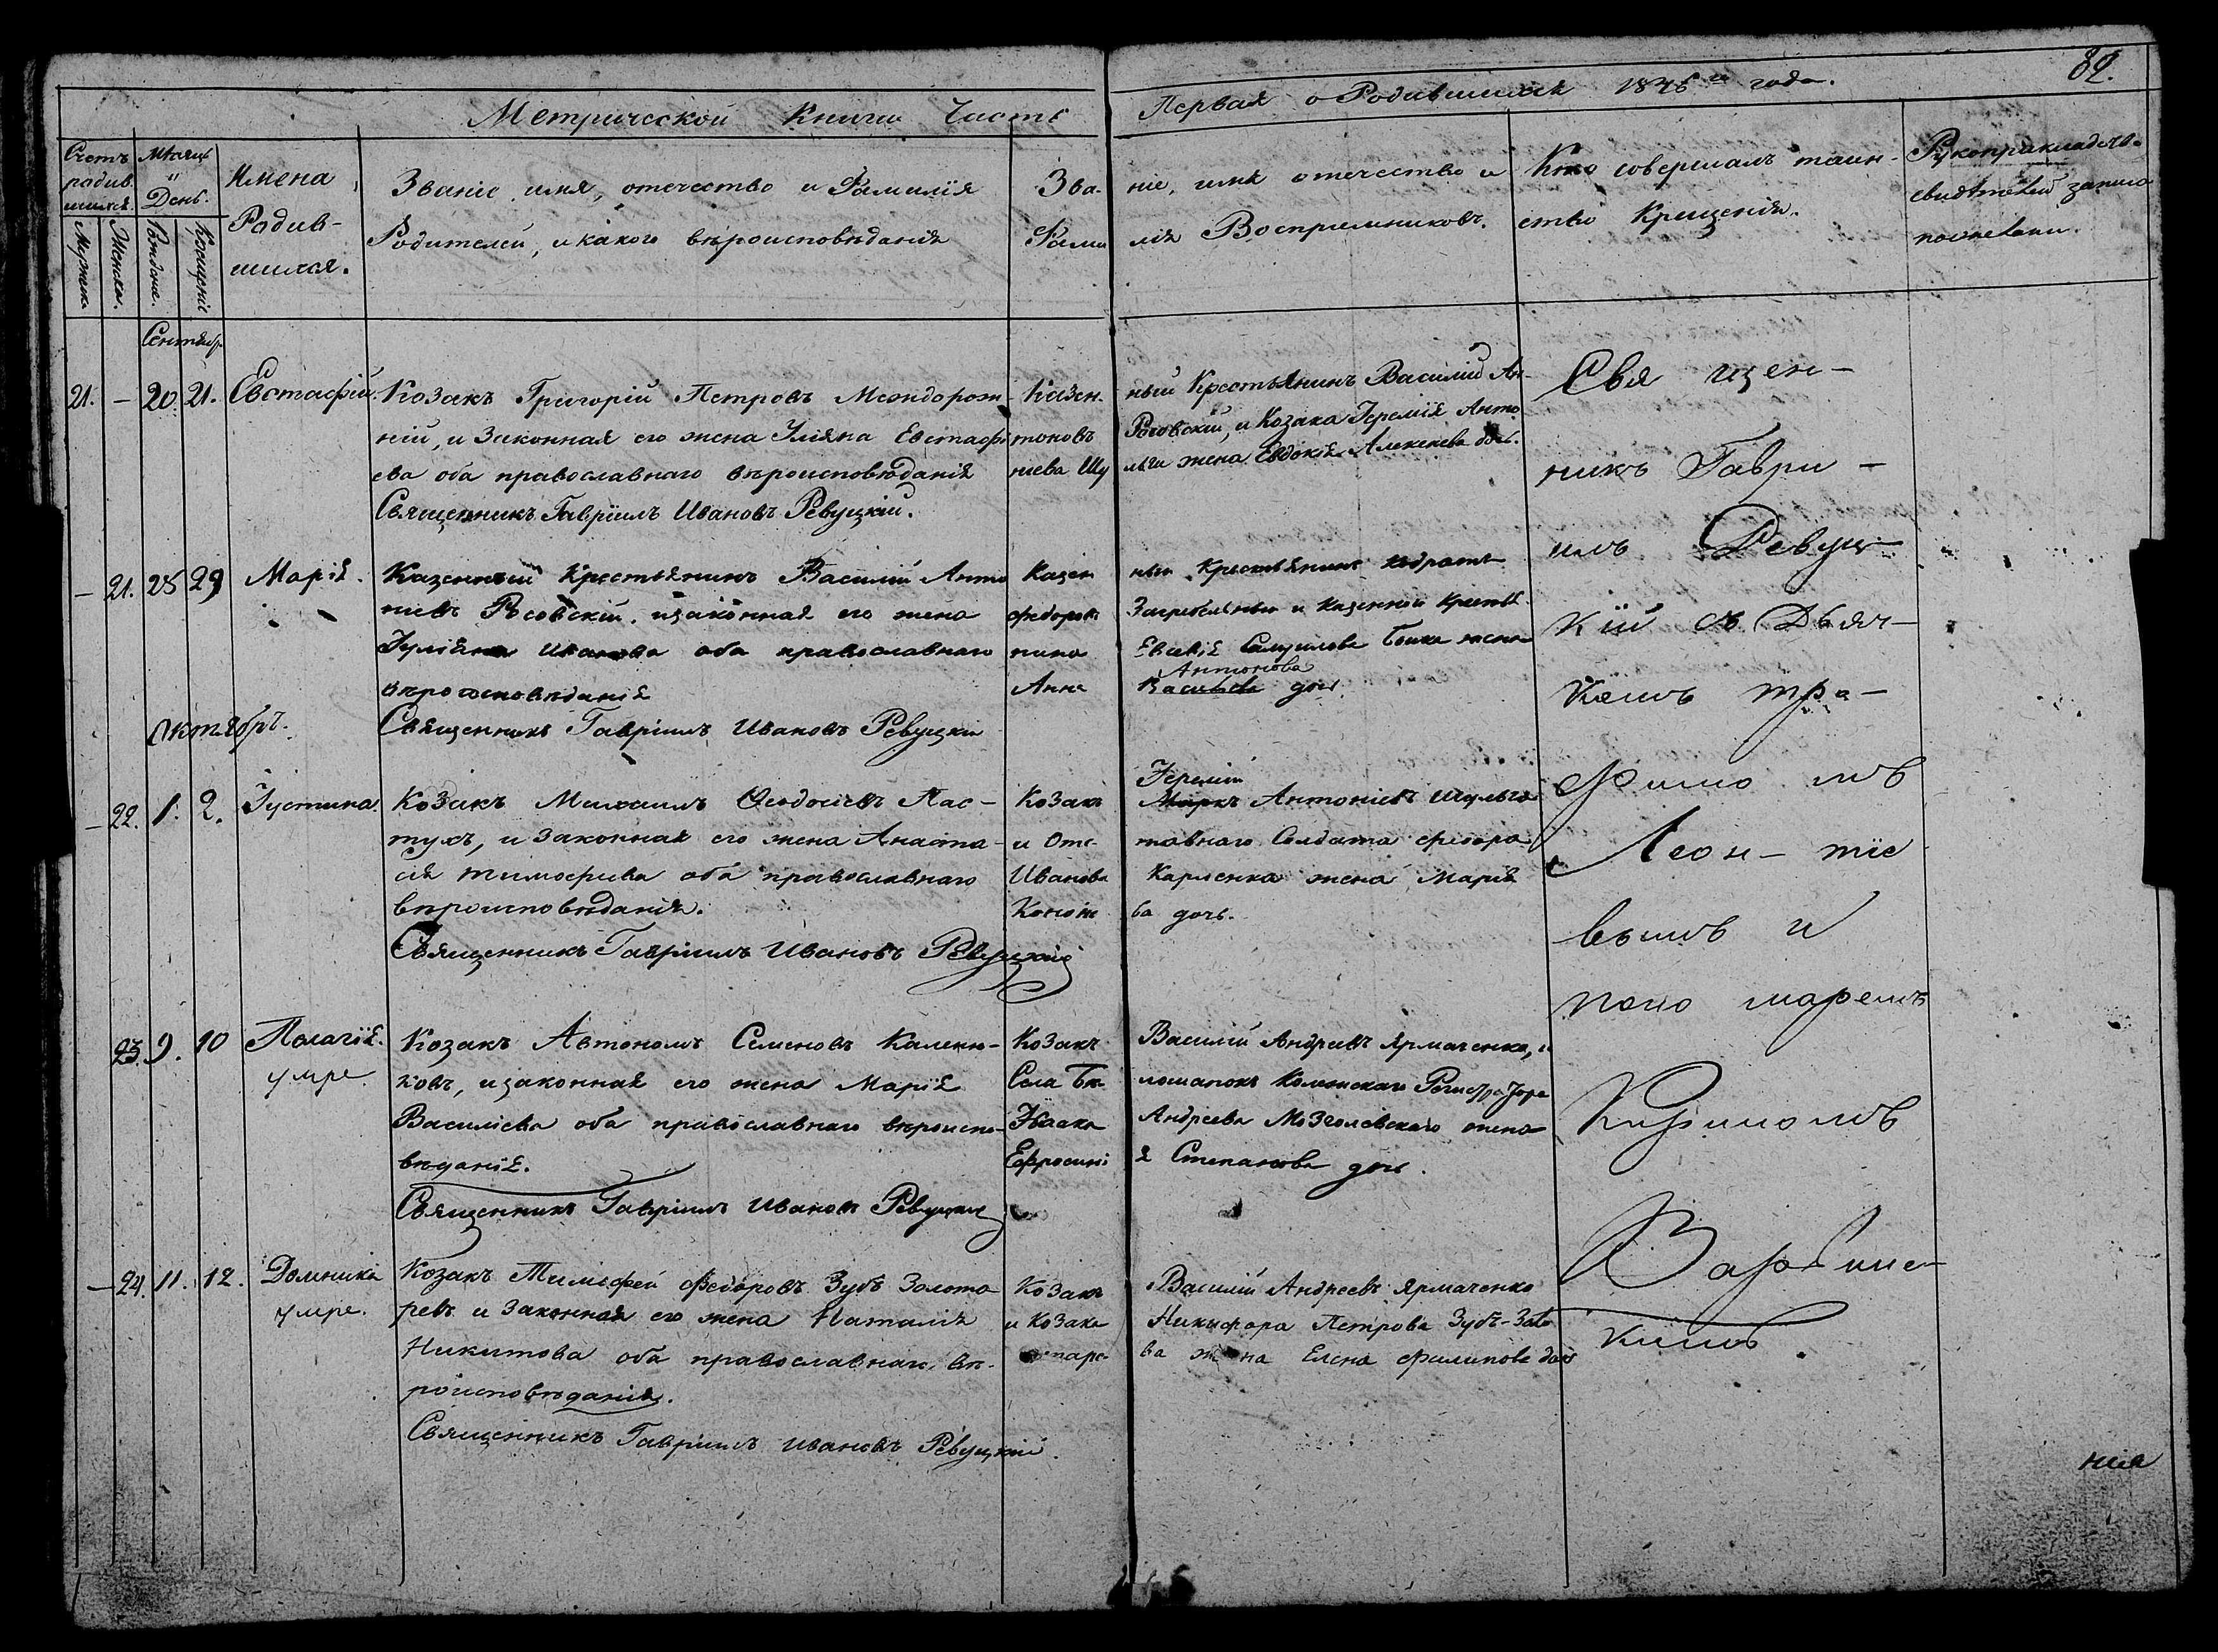 82.
Метрической Книги Часть Первая о Родившихся 1846го года.
Счетъ родив. шихся.
Мужеск.
Женска.
Мѣсяцъ и День.
Рожденіе.
Крещеніе
Имена Родив- шихся.
Званіе, имя, отечество и Фамилія
Родителей, и какого вѣроисповѣданія
Зва- ніе, имя отечество и
Фами лія Воспріемниковъ.
Кто совершалъ таин-
ство Крещенія.
Рукоприкладство
свидѣтелей записи
по желанію.
Сентябр.
21. — 20. 21. Евстафій. Козакъ Григорій Петровъ Межидорож-
ній, и Законная его жена Уліяна Евстафі
ева оба православнаго вѣроисповѣданія
Священникъ Гавріилъ Ивановъ Ревуцкій.
Казен- ный Крестьянинъ Василій Ан-
тоновъ Росовскій, и Козака Іеремія Анто
ніева Шу льги жена Евдокія Алексѣева дочь.
— 21. 28 29 Марія. Казенный Крестьянинъ Василій Анто
ніевъ Росовскій. и законная его жена
Іуліяна Иванова оба православнаго
вѣроисповѣданія
Священникъ Гавріилъ Ивановъ Ревуцкій
Казен ный Крестьянинъ Кодратъ
Федоровъ и Казенной Крестья
нина Евсевія Самуилова Бойка жена
Антонова
Анна Васильева дочь.
Октябрь.
— 22. 1. 2. Іустина. Козакъ Михаилъ Ѳеодосіевъ Пас-
тухъ, и Законная его жена Анаста-
сія Тимофѣева оба православнаго
вѣроисповѣданія.
Священникъ Гавріилъ Ивановъ Ревуцкій
Іеремій
Козакъ Маркъ Антоніевъ Шульга
и Отс- тавнаго Солдата Федора
Иванова Карпенка жена Марія
Конон ва дочь.
23. 9. 10 Пелагія. Козакъ Автономъ Семеновъ Каленю-
умре.
ковъ, и законная его жена Марія
Василіева оба православнаго вѣроиспо-
вѣданія.
Священникъ Гавріилъ Ивановъ Ревуцкій
Козакъ Василій Андреевъ Ярмаченко, и
Села Бѣ- лошапокъ Колежскаго Регистратора
Исаака Андреева Мозголевскаго жена
Ефросині я Степанова дочь.
— 24. 11. 12. Домникія Козакъ Тимофей Федоровъ Зубъ Золота
умре.
ревъ и Законная его жена Наталія
Никитова оба православнаго вѣ-
роисповѣданія.
Священникъ Гавріилъ Ивановъ Ревуцкій.
Козакъ Василій Андреевъ Ярмаченко
и Козака Никифора Петрова Зубъ-Золо
таре- ва жена Елена Филипова дочь
Свя щен-
никъ Гаври-
илъ Ревуц-
кій съ Дьяч-
комъ Тро-
фимо мъ
Леон- тіе
вымъ и
поно маремъ
Кирилломъ
кимъ.
нія